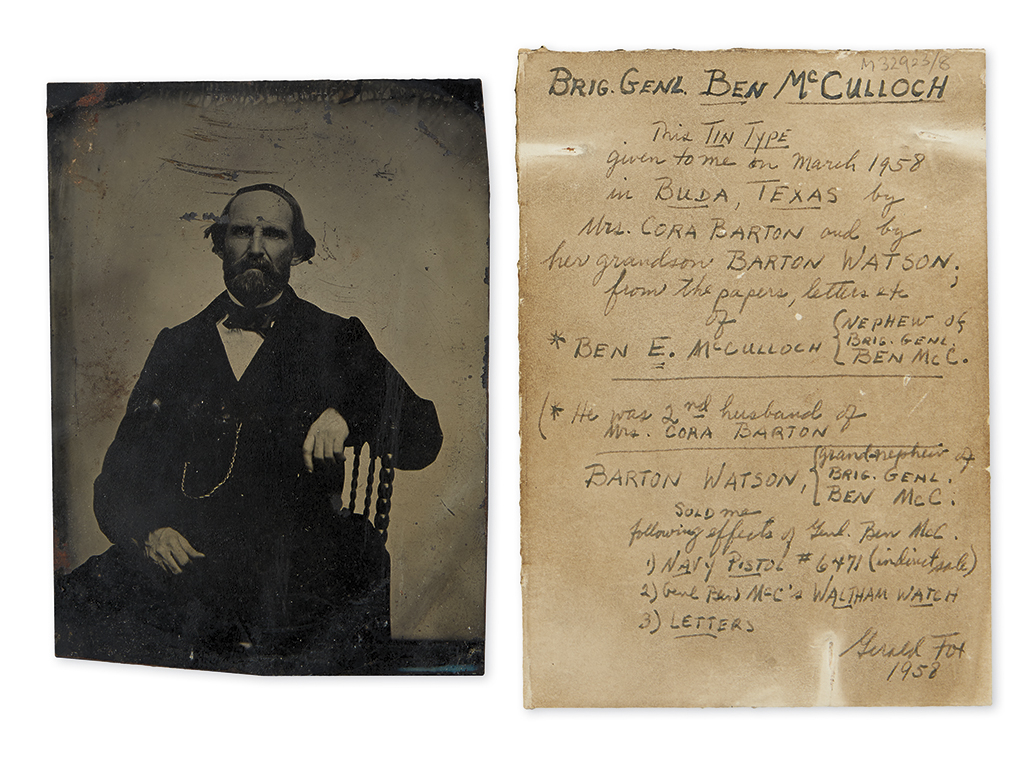 M 32923/8
BRIG. GENL BEN McCULLOCH
This TIN TYPE
given to me on March 1958
in BUDA, TEXAS by
Mrs. CORA BARTON and by
her grandson BARTON WATSON,
from the papers, letters etc
of
* BEN E. McCULLOCH { NEPHEW of
BRIG. GENL.
BEN McC.
(* He was 2nd husband of
Mrs. CORA BARTON
BARTON WATSON, { grand nephew of
BRIG. GENL.
BEN McC.
SOLD me
following effects of Genl. Ben McC.
1) NAVY PISTOL #6471 (indirect sale)
2) Genl Ben McC's WALTHAM WATCH
3) LETTERS
Gerald Fox
1958